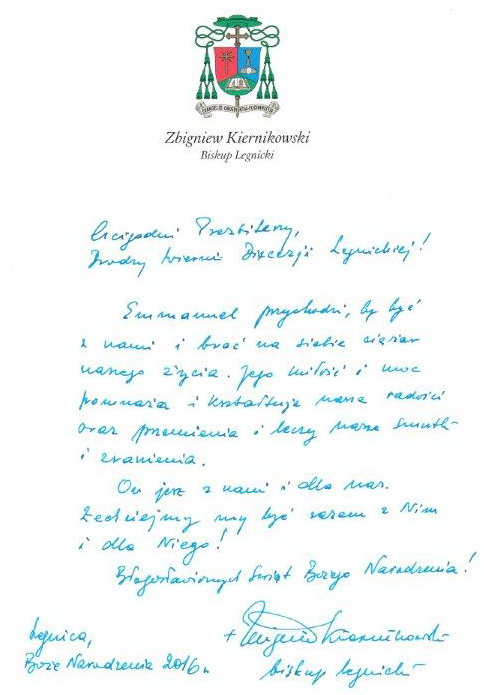 Zbigniew Kiernikowski
Biskup Legnicki
Czcigodni Prezbiterzy,
Drodzy Wierni Diecezji Legnickiej!
Emmanuel przychodzi, by być
z nami i brać na siebie ciężar
naszego życia. Jego miłość i moc
pomnaża i kształtuje nasze radości
oraz przemienia i leczy nasze smutki
i zranienia.
On jest z nami i dla nas.
Zechciejmy my być razem z Nim
i dla Niego!
Błogosławionych Świąt Bożego Narodzenia!
Legnica,
Boże Narodzenie 2016 r.
+ Zbigniew Kiernikowski
biskup legnicki